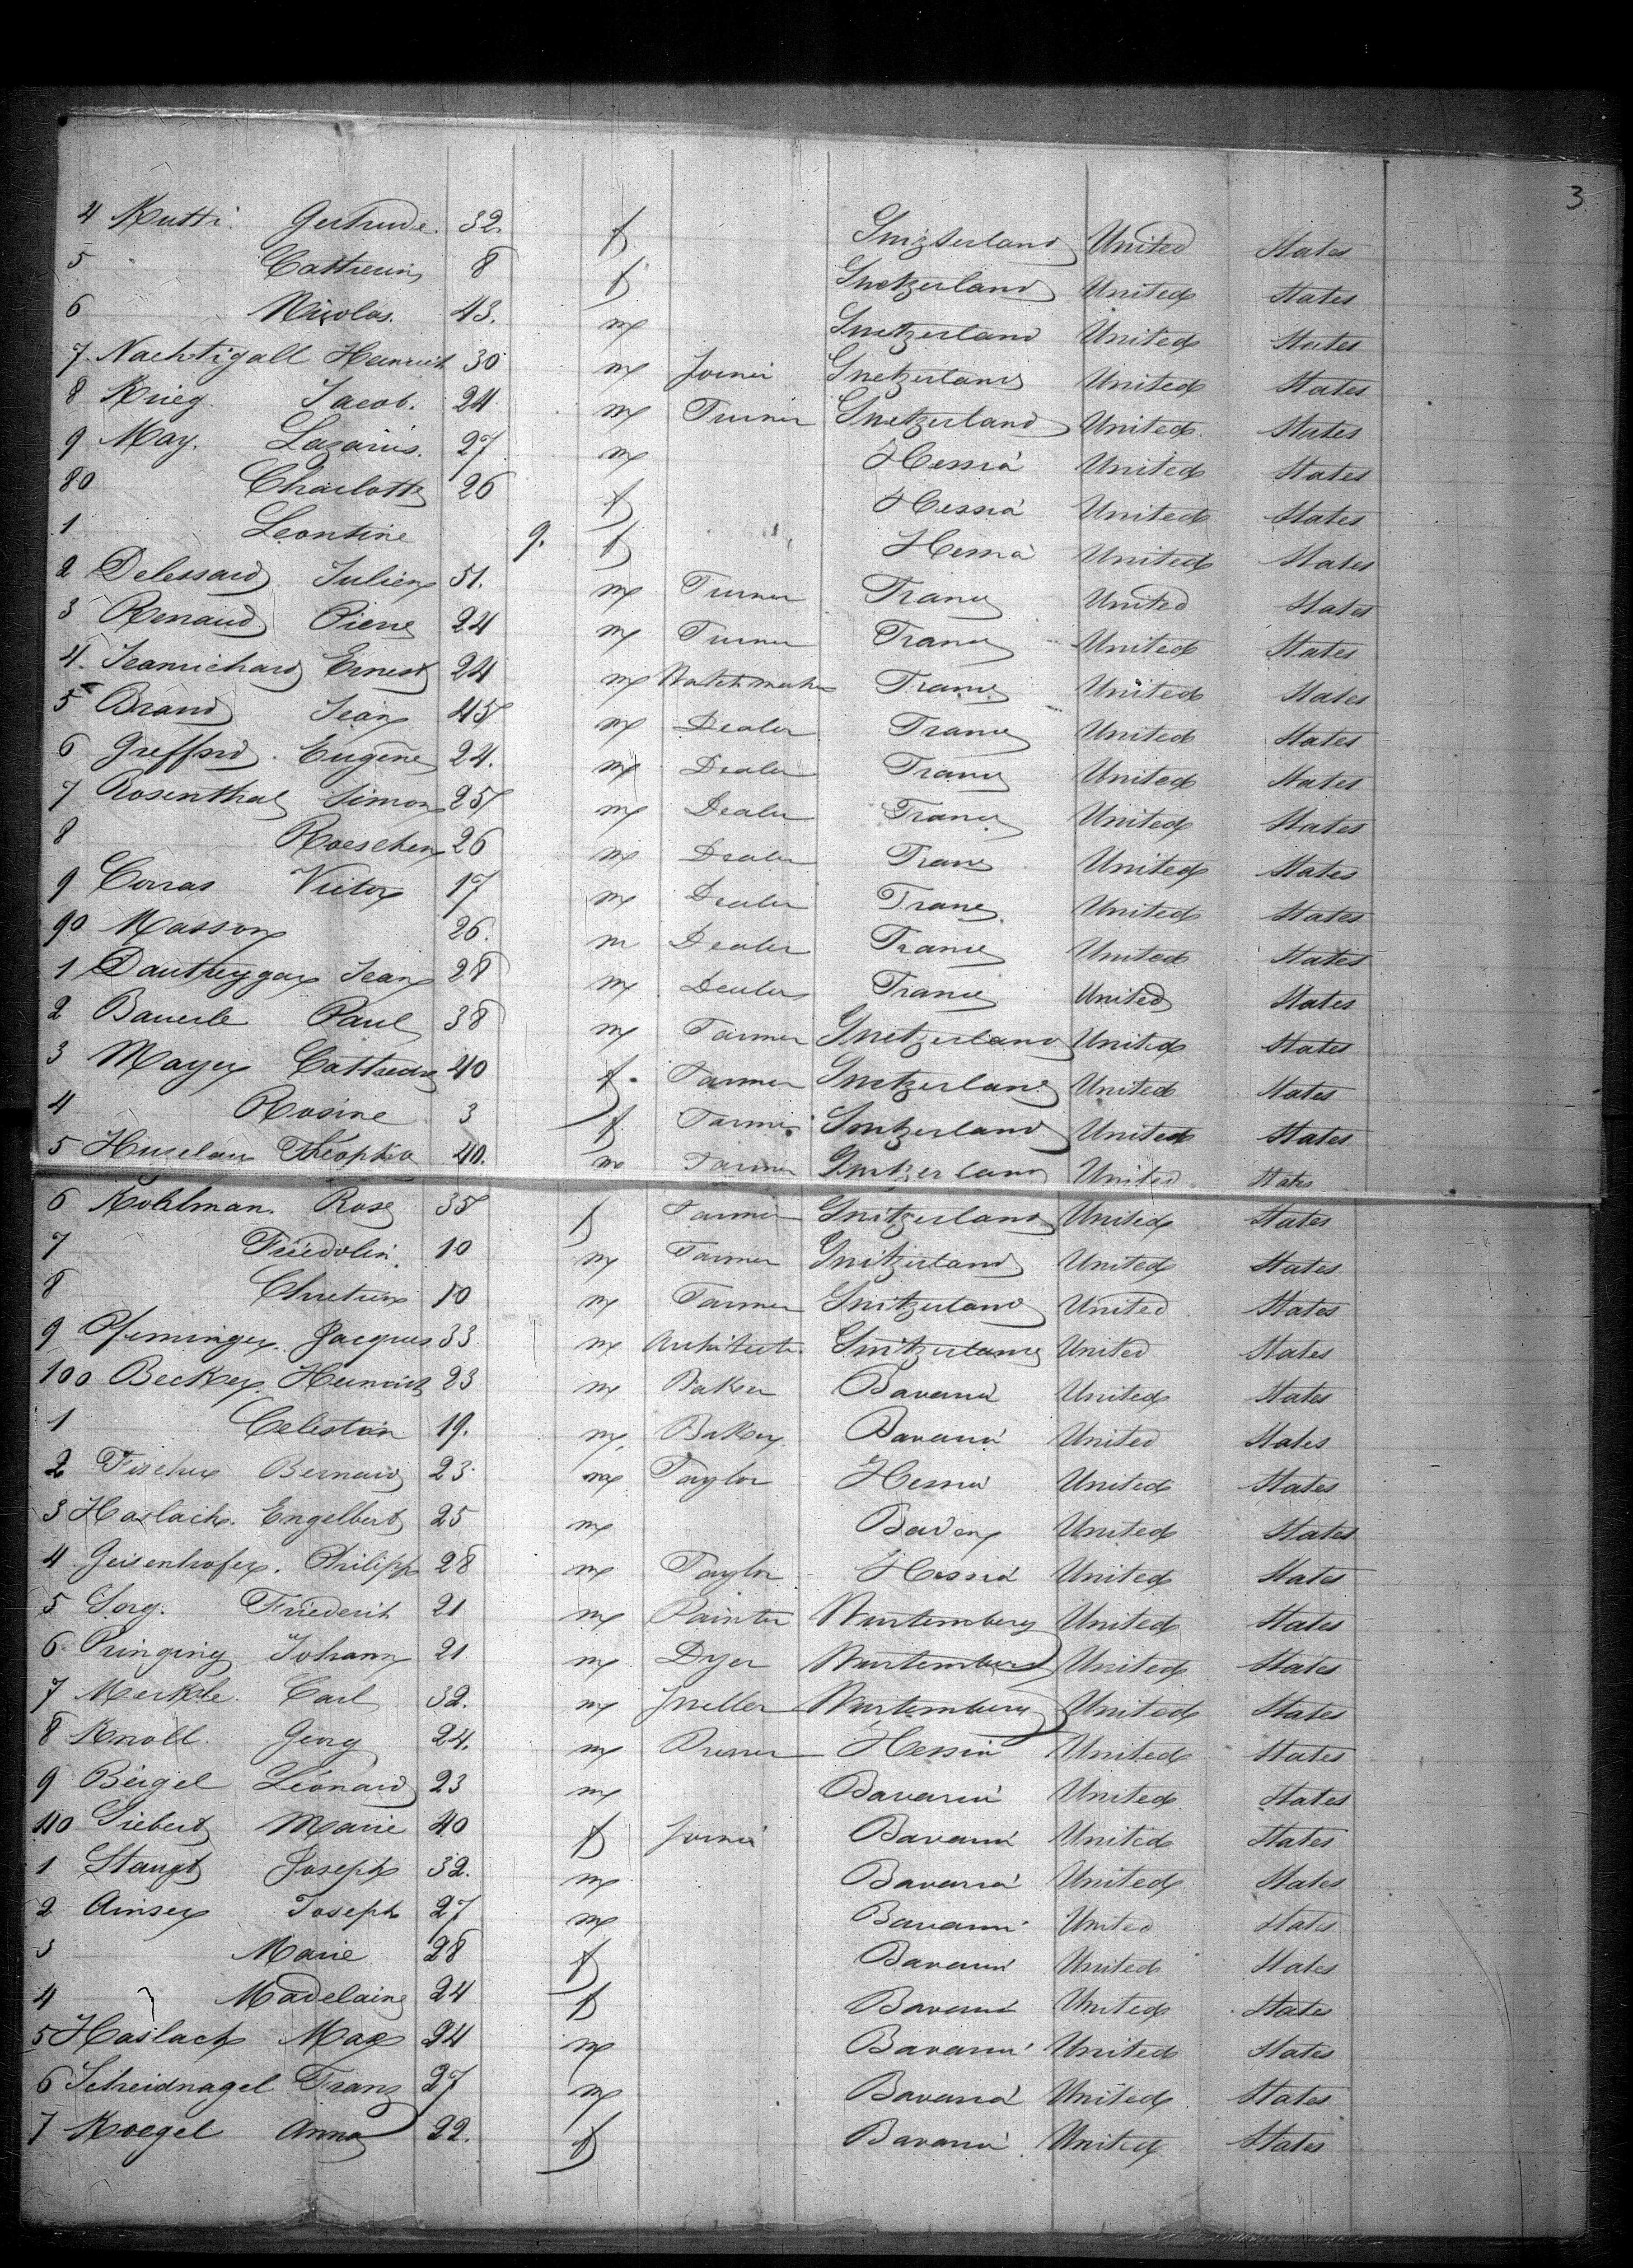 3
4 Kutti Gertrude. 32. f Switzterland United States
5 " Cattherin 8 f Switzerland United States
6 Nicolas. 43. m Switzerland United States
7. Nachtigall Heinrich 30 m Joiner Switzerland United States
8 Krieg Jacob. 24 m Turner Switzerland United States
9 May. Lazarus. 27 m Hessia United States
80 Charlotte 26 f Hessia United States
1 Leontine 9. f Hessia United States
2 Delessard Julien 51. m Turner France United States
3 Renaud Pierre 24 m Turner France United States
4. Jeanrichard Ernest 24 m Watchmaker France United States
5 Brand Jean 45 m Dealer France United States
6 Grefford. Eugène 24. m Dealer France United States
7 Rosenthal Simon 25 m Dealer France United States
8 Roeschen 26 m Dealer France United States
9 Corras Victor 17 m Dealer France United States
90 Masson 26. m Dealer France United States
1 Jean 28 m Dealer France United States
2 Bauerle Paul 38 m Farmer Switzerland United States
3 Mayer 40 f. Farmer Switzerland United States
4 Rosine 3 f Farmer Switzerland United States
5 40. m Farmer Switzerland United States
6 Kohlman. Rose 35 f Farmer Switzerland United States
7 Friedolin. 10 m Farmer Switzerland United States
8 Chretien 10 m Farmer Switzerland United States
9 Pfeminger. Jacques 33. m Architect. Switzerland United States
100 Becker. Heinrich 23 m Baker Bavaria United States
1 Celestin 19. m. Baker Bavaria United States
2 Fischer Bernard 23. m Taylor Hessia United States
3 Haslach. Engelbert 25 m Baden United States
4 Geisenhofer. Philipp 28 m Taylor Hessia United States
5 Sorg. Friederik 21 m Painter Wurtemberg United States
6 Johann 21. m Dyer Wurtemberg United States
7 Merkle. Carl 32. m Jweller Wurtemberg United States
8 Knoll. Georg 24. m Hessia United States
9 Beigel Léonard 23 m Bavaria United States
110 Siebert Marie 40 f Joiner Bavaria United States
1 Staugt Joseph 32. m Bavaria United States
2 Ainser Joseph 27 m Bavaria United States
3 Marie 28 f Bavaria United States
4 " Madelaine 24 f Bavaria United States
5 Haslach Max 24 m Bavaria United States
6 Scheidnagel Franz 27 m Bavaria United States
7 Koegel Anna 22. f Bavaria United States